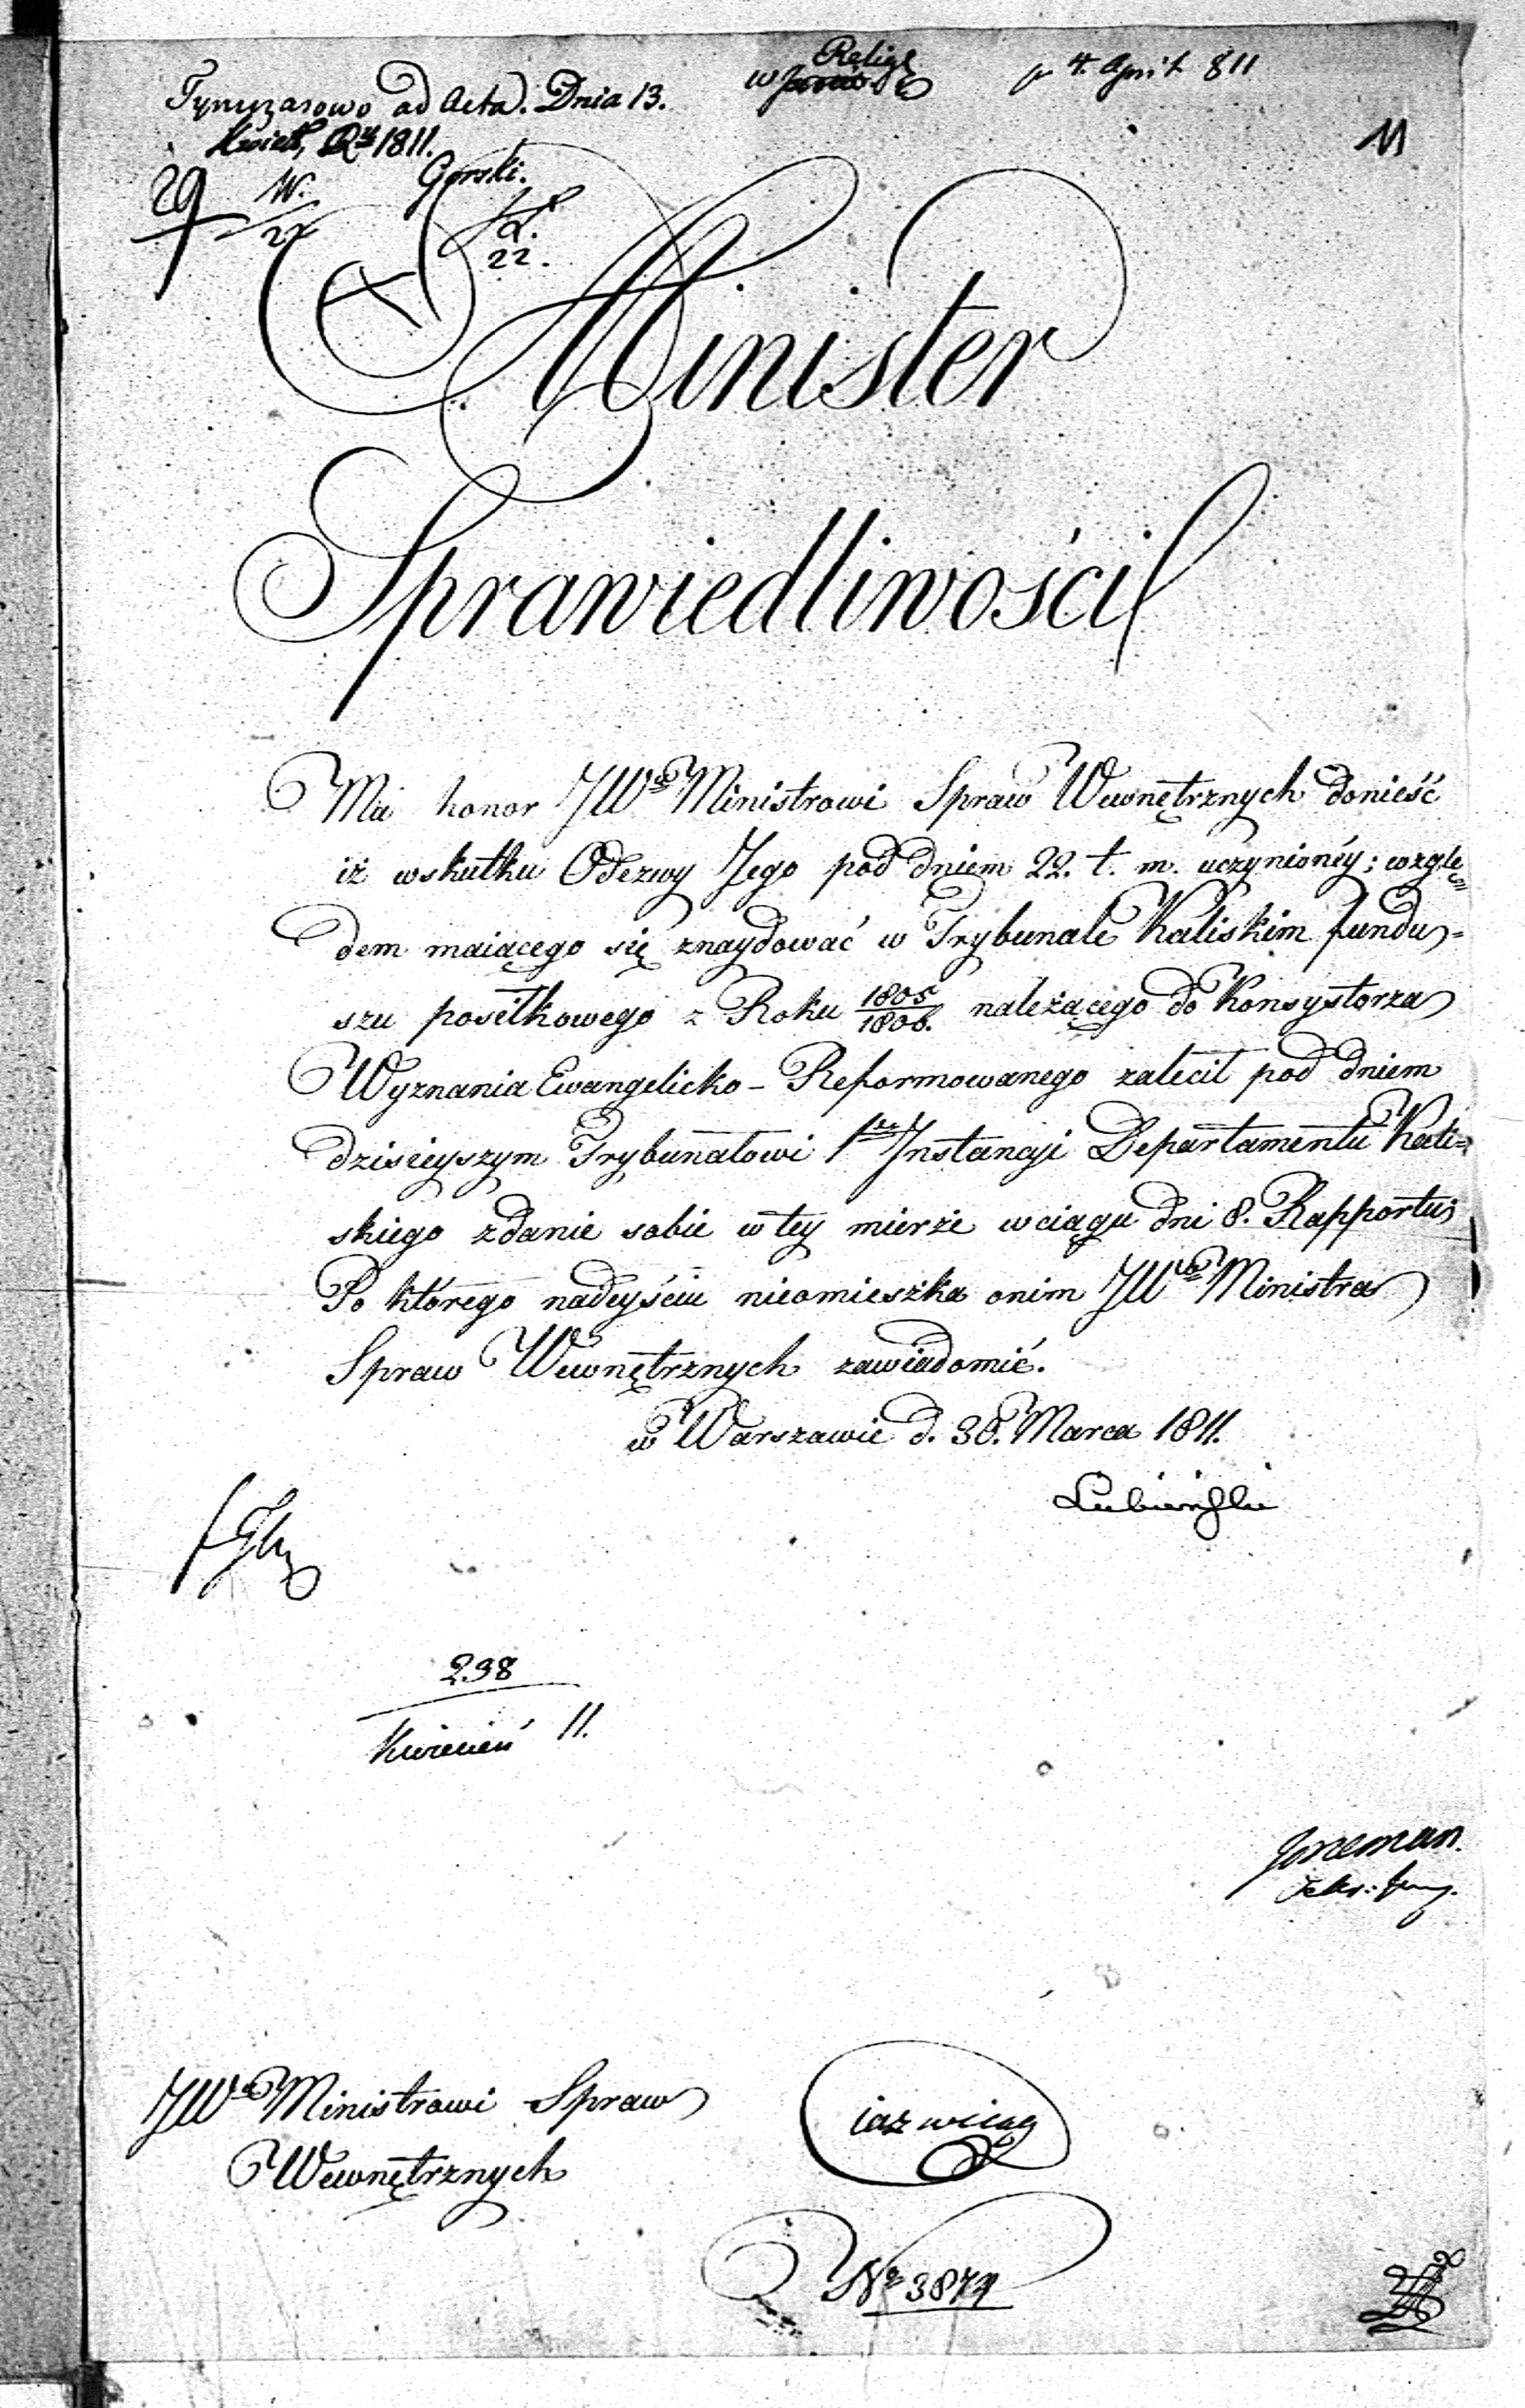 Religie
p 4. April 811
Tymczasowo ad Acta. Dnia 13.
w
Kwiet, R 1811.
11
Górski.
29
W.
22
L.
22.
Minister
Sprawiedliwości
Ma honor JWu Ministrowi Spraw Wewnętrznych donieść
iż wskutku Odezwy Jego pod dniem 22. t. m. uczynionéy; wzglę=
dem maiącego się znaydować w Trybunale Kaliskim fundu=
szu posiłkowego z Roku 1805/1806. należącego do Konsystorza
Wyznania Ewangelicko - Reformowanego zalecił pod dniem
dzisieyszym Trybunałowi 1szey Instancyi Departamentu Kali=
skiego zdanie sobie w tey mierze wciągu dni 8. Rapportu;
Po którego nadeyściu nieomieszka onim JWo Ministra
Spraw Wewnętrznych zawiadomić.
w Warszawie d. 30. Marca 1811.
Lubieński
238
Kwiecień 11.
JWu Ministrowi Spraw
Wewnętrznych
iaz wciąg
Nr 3874